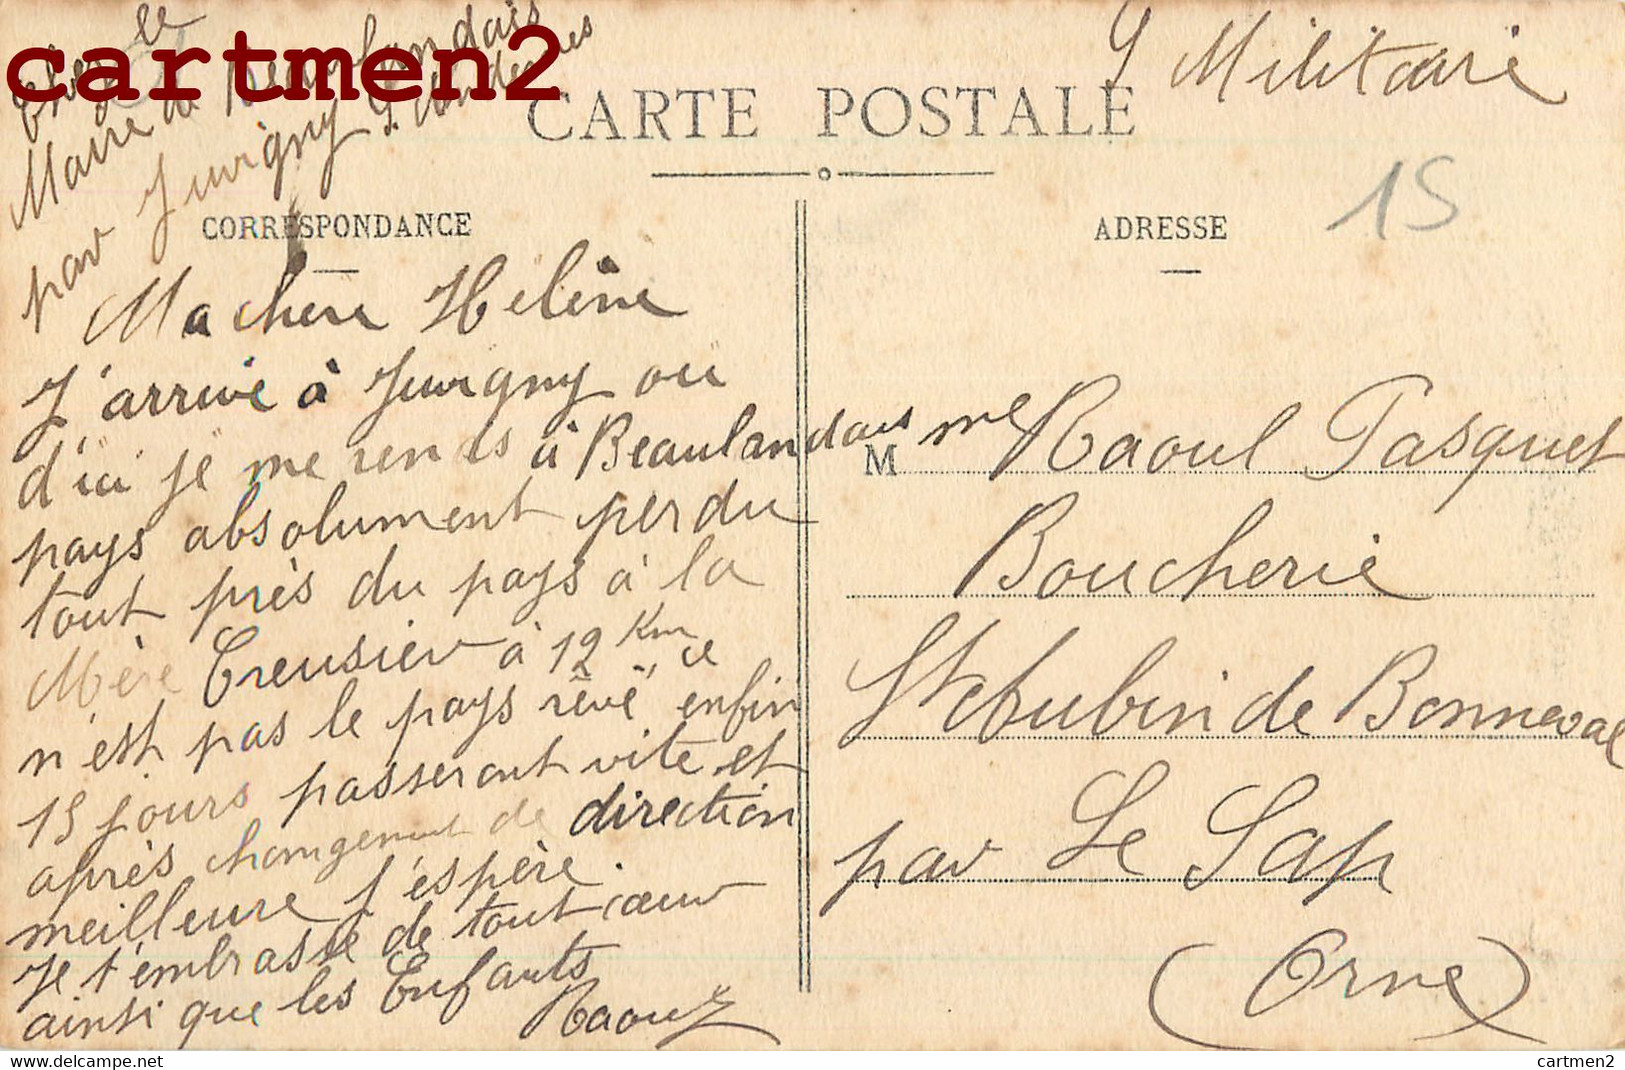 cartmen2
Chez le
Maire de Beaulandais
par Juvigny S. Andaines
S Militaire
CARTE POSTALE
15
CORRESPONDANCE
ADRESSE
Ma chere Hélène
J'arrive à Juvigny ou
d'ici je me rends à Beaulandais
pays absolument perdu
tout près du pays à la
Mère Creusier à 12 Km ce
n'est pas le pays rêvé, enfin
15 jours passeront vite et
après changement de direction
meilleure j'espère.
Je t'embrasse de tout cœur
ainsi que les Enfants
Raoul
M me Raoul Pasquet
Boucherie
St Aubin de Bonneval
par Le Sap
(Orne)
cartmen2.delcampe.net
cartmen2